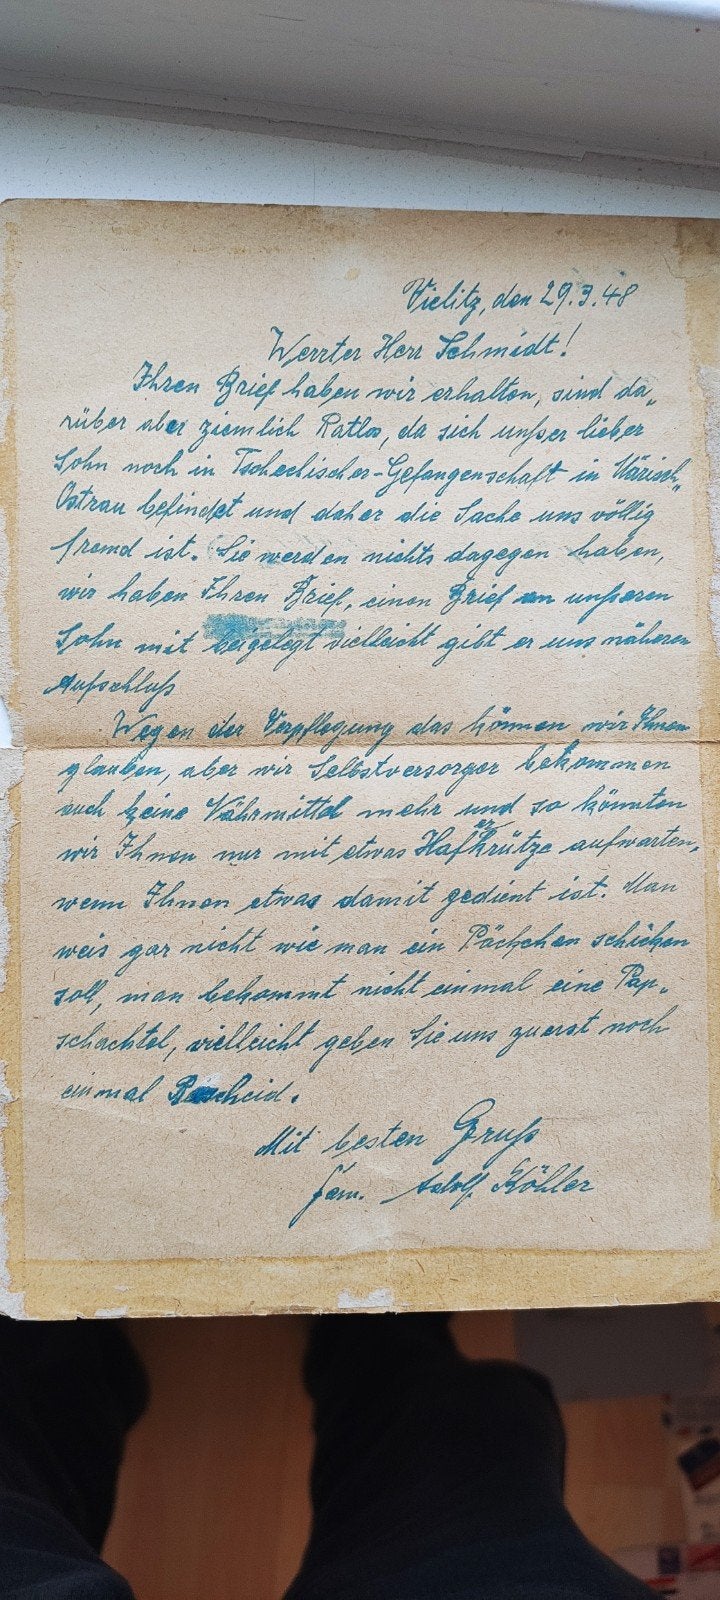 Vielitz, den 29.3.48
Werrter Herr Schmidt!
Ihren Brief haben wir erhalten, sind da„
rüber aber ziemlich Ratlos, da sich unßer lieber
Sohn noch in Tschechischer-Gefangenschaft in Märisch„
Ostrau befindet und daher die Sache uns völlig
fremd ist. Sie werden nichts dagegen haben,
wir haben Ihren Brief, einen Brief an unßeren
Sohn mit beigelegt vielleicht gibt er uns näheren
Aufschluß
Wegen der Verpflegung das können wir Ihnen
glauben, aber wir Selbstversorger bekommen
auch keine Nährmittel mehr und so könnten
wir Ihnen nur mit etwas Haferkrütze aufwarten,
wenn Ihnen etwas damit gedient ist. Man
weis gar nicht wie man ein Päckchen schicken
soll, man bekommt nicht einmal eine Pap„
schachtel, vielleicht geben Sie uns zuerst noch
einmal Bescheid.
Mit besten Gruß
Fam. Adolf Köhler